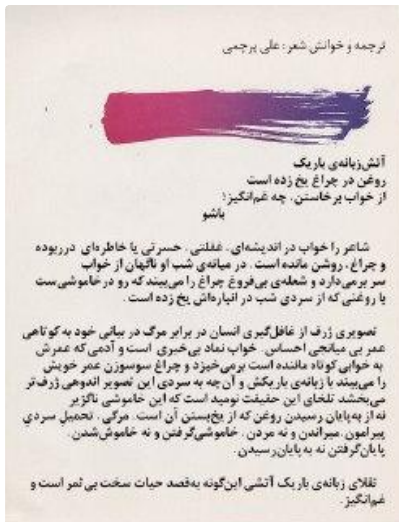 ترجمه و خوانش شعر: علی پرچمی
آتش‌زبانه‌ی باریک
روغن در چراغ یخ زده است
از خواب برخاستن، چه غم‌انگیز!
باشو
شاعر را خواب در اندیشه‌ای، غفلتی، حسرتی یا خاطره‌ای درربوده
و چراغ، روشن مانده است. در میانه‌ی شب او ناگهان از خواب
سر برمی‌دارد و شعله‌ی بی‌فروغ چراغ را می‌بیند که رو در خاموشی‌ست
با روغنی که از سردی شب در انباره‌اش یخ زده است.
تصویری ژرف از غافل‌گیری انسان در برابر مرگ در بیانی خود به کوتاهی
عمر بی میانجی احساس. خواب نماد بی‌خبری است و آدمی که عمرش
به خوابی کوتاه ماننده است برمی‌خیزد و چراغ سوسوزن عمر خویش
را می‌بیند با زبانه‌ی باریکش و آن‌چه به سردی این تصویر اندوهی ژرف‌تر
می‌بخشد تلخای این حقیقت نومید است که این خاموشی ناگزیر
نه از به‌پایان رسیدن روغن که از یخ‌بستن آن است. مرگی، تحمیل سردی
پیرامون. میراندن و نه مردن. خاموشی‌گرفتن و نه خاموش‌شدن.
پایان‌گرفتن نه به‌پایان‌رسیدن.
تقلای زبانه‌ی باریک آتشی این‌گونه به‌قصد حیات سخت بی ثمر است و
غم‌انگیز.